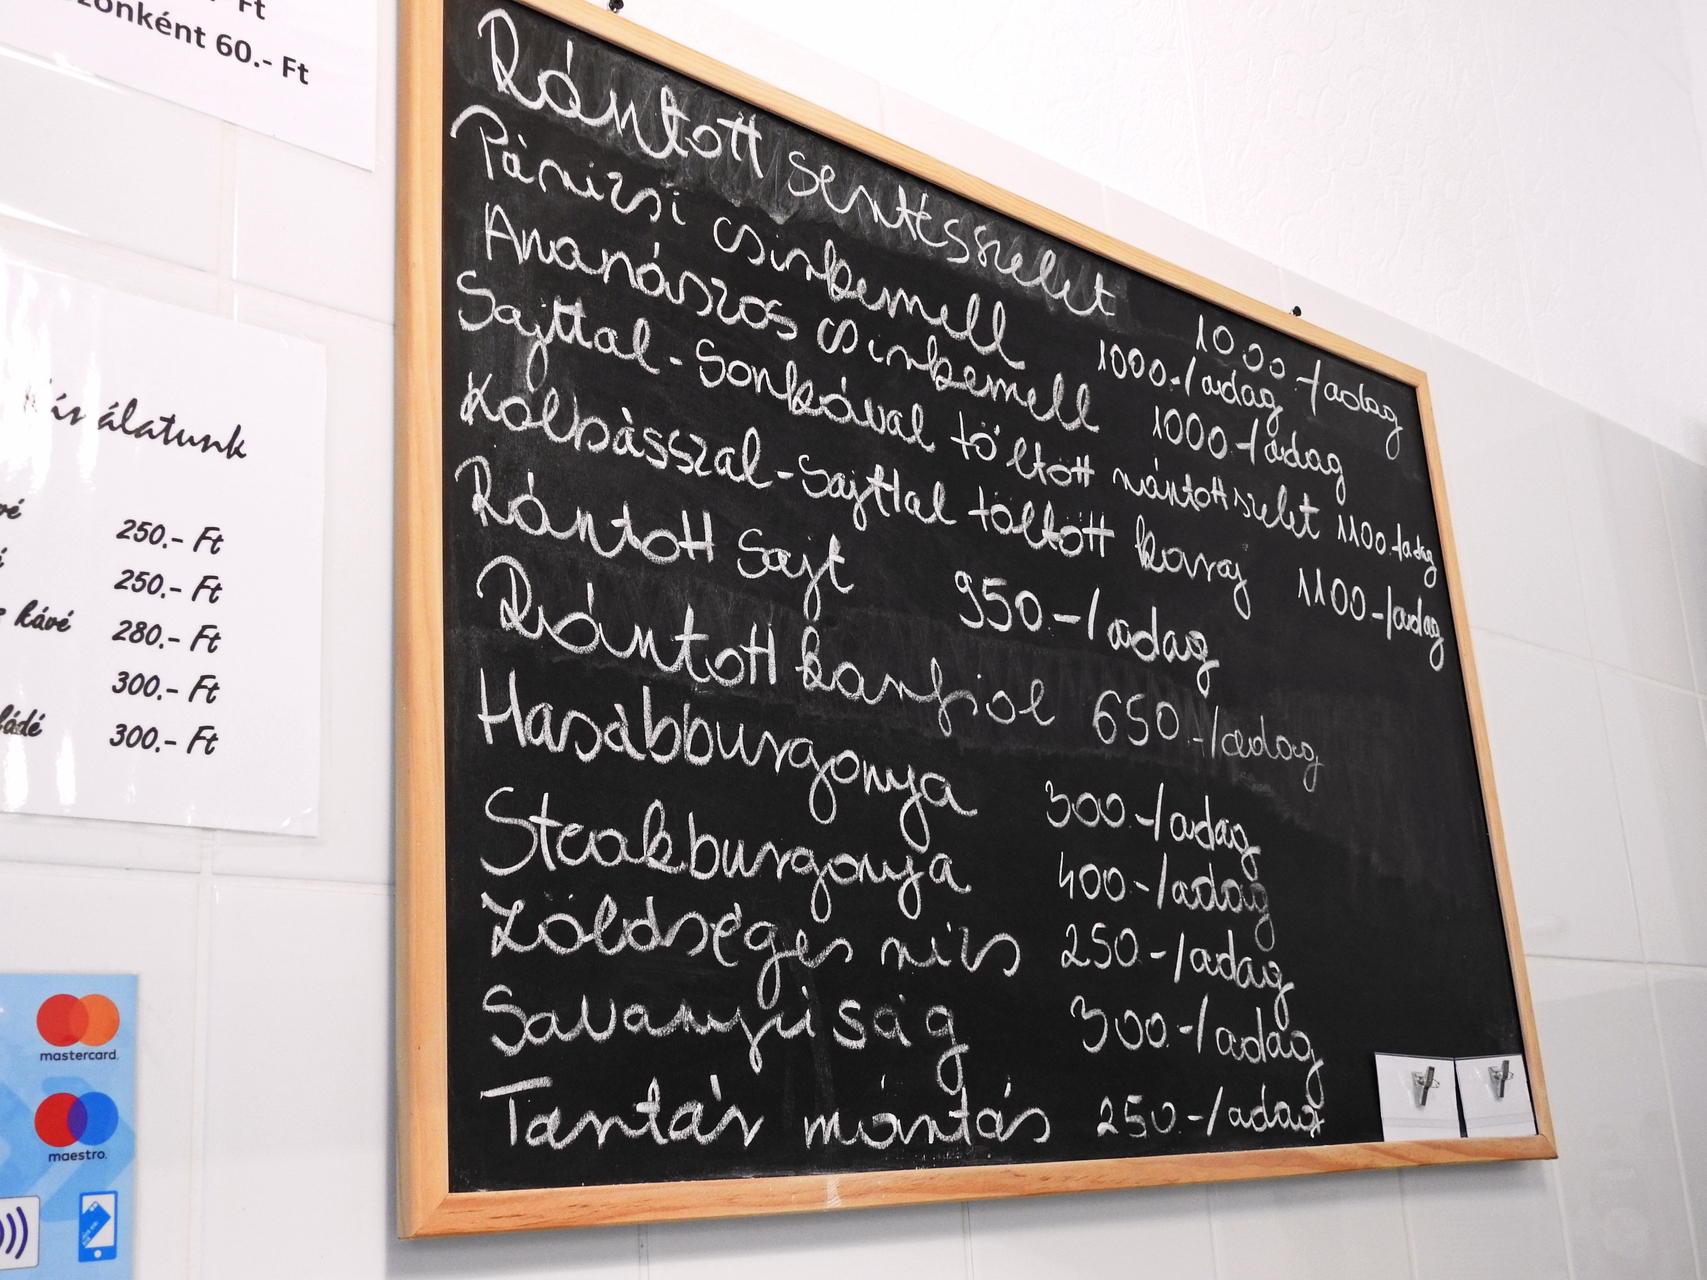 Ft
zonként 60.- Ft
álatunk
250.- Ft
250.- Ft
kávé 280.- Ft
300.- Ft
300.- Ft
mastercard.
maestro.
Rántott sertésszelet 1000.-/adag
Párizsi csirkemell 1000.-/adag
Ananászos csirkemell 1000.-/adag
Sajttal-Sonkával töltött rántottszelet 1100.-/adag
Kolbásszal-Sajttal töltött karaj 1100-/adag
Rántott Sajt 950.-/adag
Rántott karfiol 650.-/adag
Hasábburgonya 300.-/adag
Steakburgonya 400.-/adag
Zöldséges rizs 250.-/adag
Savanyúság 300.-/adag
Tartár mártás 250.-/adag